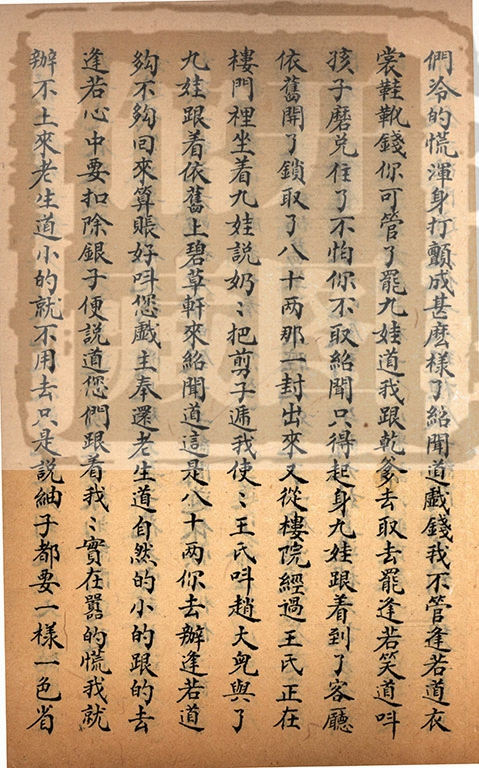 們冷的慌渾身打顫成甚麽樣了紹聞道戲錢我不管逢若道衣
裳鞋靴錢你可管了罷九娃道我跟乾爹去取去罷逢若笑道叫
孩子磨兑住了不怕你不取紹聞只得起身九娃跟着到了客廳
依舊開了鎖取了八十两那一封出來又從樓院經過王氏正在
樓門裡坐着九娃説奶〻把剪子遞我使〻王氏呌趙大兒與了
九娃跟着依舊上碧草軒來紹聞道這是八十两你去辦逢若道
夠不夠回來算賬好呌您戲主奉還老生道自然的小的跟的去
逢若心中要扣除銀子便説道您們跟着我〻實在嚣的慌我就
辦不上來老生道小的就不用去只是説紬子都要一樣一色省